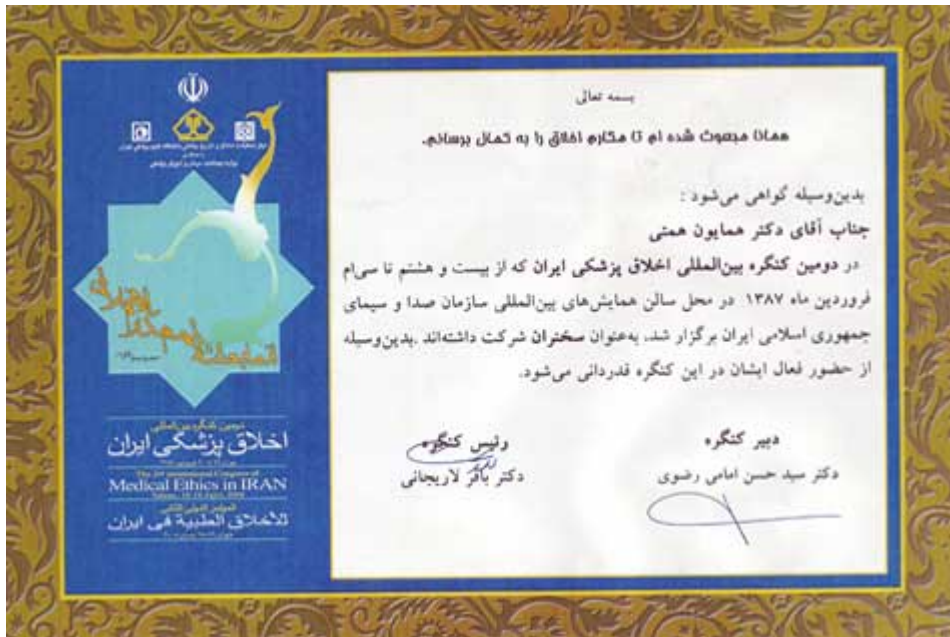 بسمه تعالی
همانا مبعوث شده ام تا مکارم اخلاق را به کمال برسانم.
بدین‌وسیله گواهی می‌شود :
جناب آقای دکتر همایون همتی
در دومین کنگره بین‌المللی اخلاق پزشکی ایران که از بیست و هشتم تا سی‌ام
فروردین ماه ۱۳۸۷ در محل سالن همایش‌های بین‌المللی سازمان صدا و سیمای
جمهوری اسلامی ایران برگزار شد، به‌عنوان سخنران شرکت داشته‌اند .بدین‌وسیله
از حضور فعال ایشان در این کنگره قدردانی می‌شود.
دبیر کنگره
دکتر سید حسن امامی رضوی
رئیس کنگره
دکتر باقر لاریجانی
دومین کنگره بین‌المللی
اخلاق پزشکی ایران
The 2nd International Congress of
Medical Ethics in IRAN
المؤتمر الدولی الثانی
للأخلاق الطبیة فی ایران